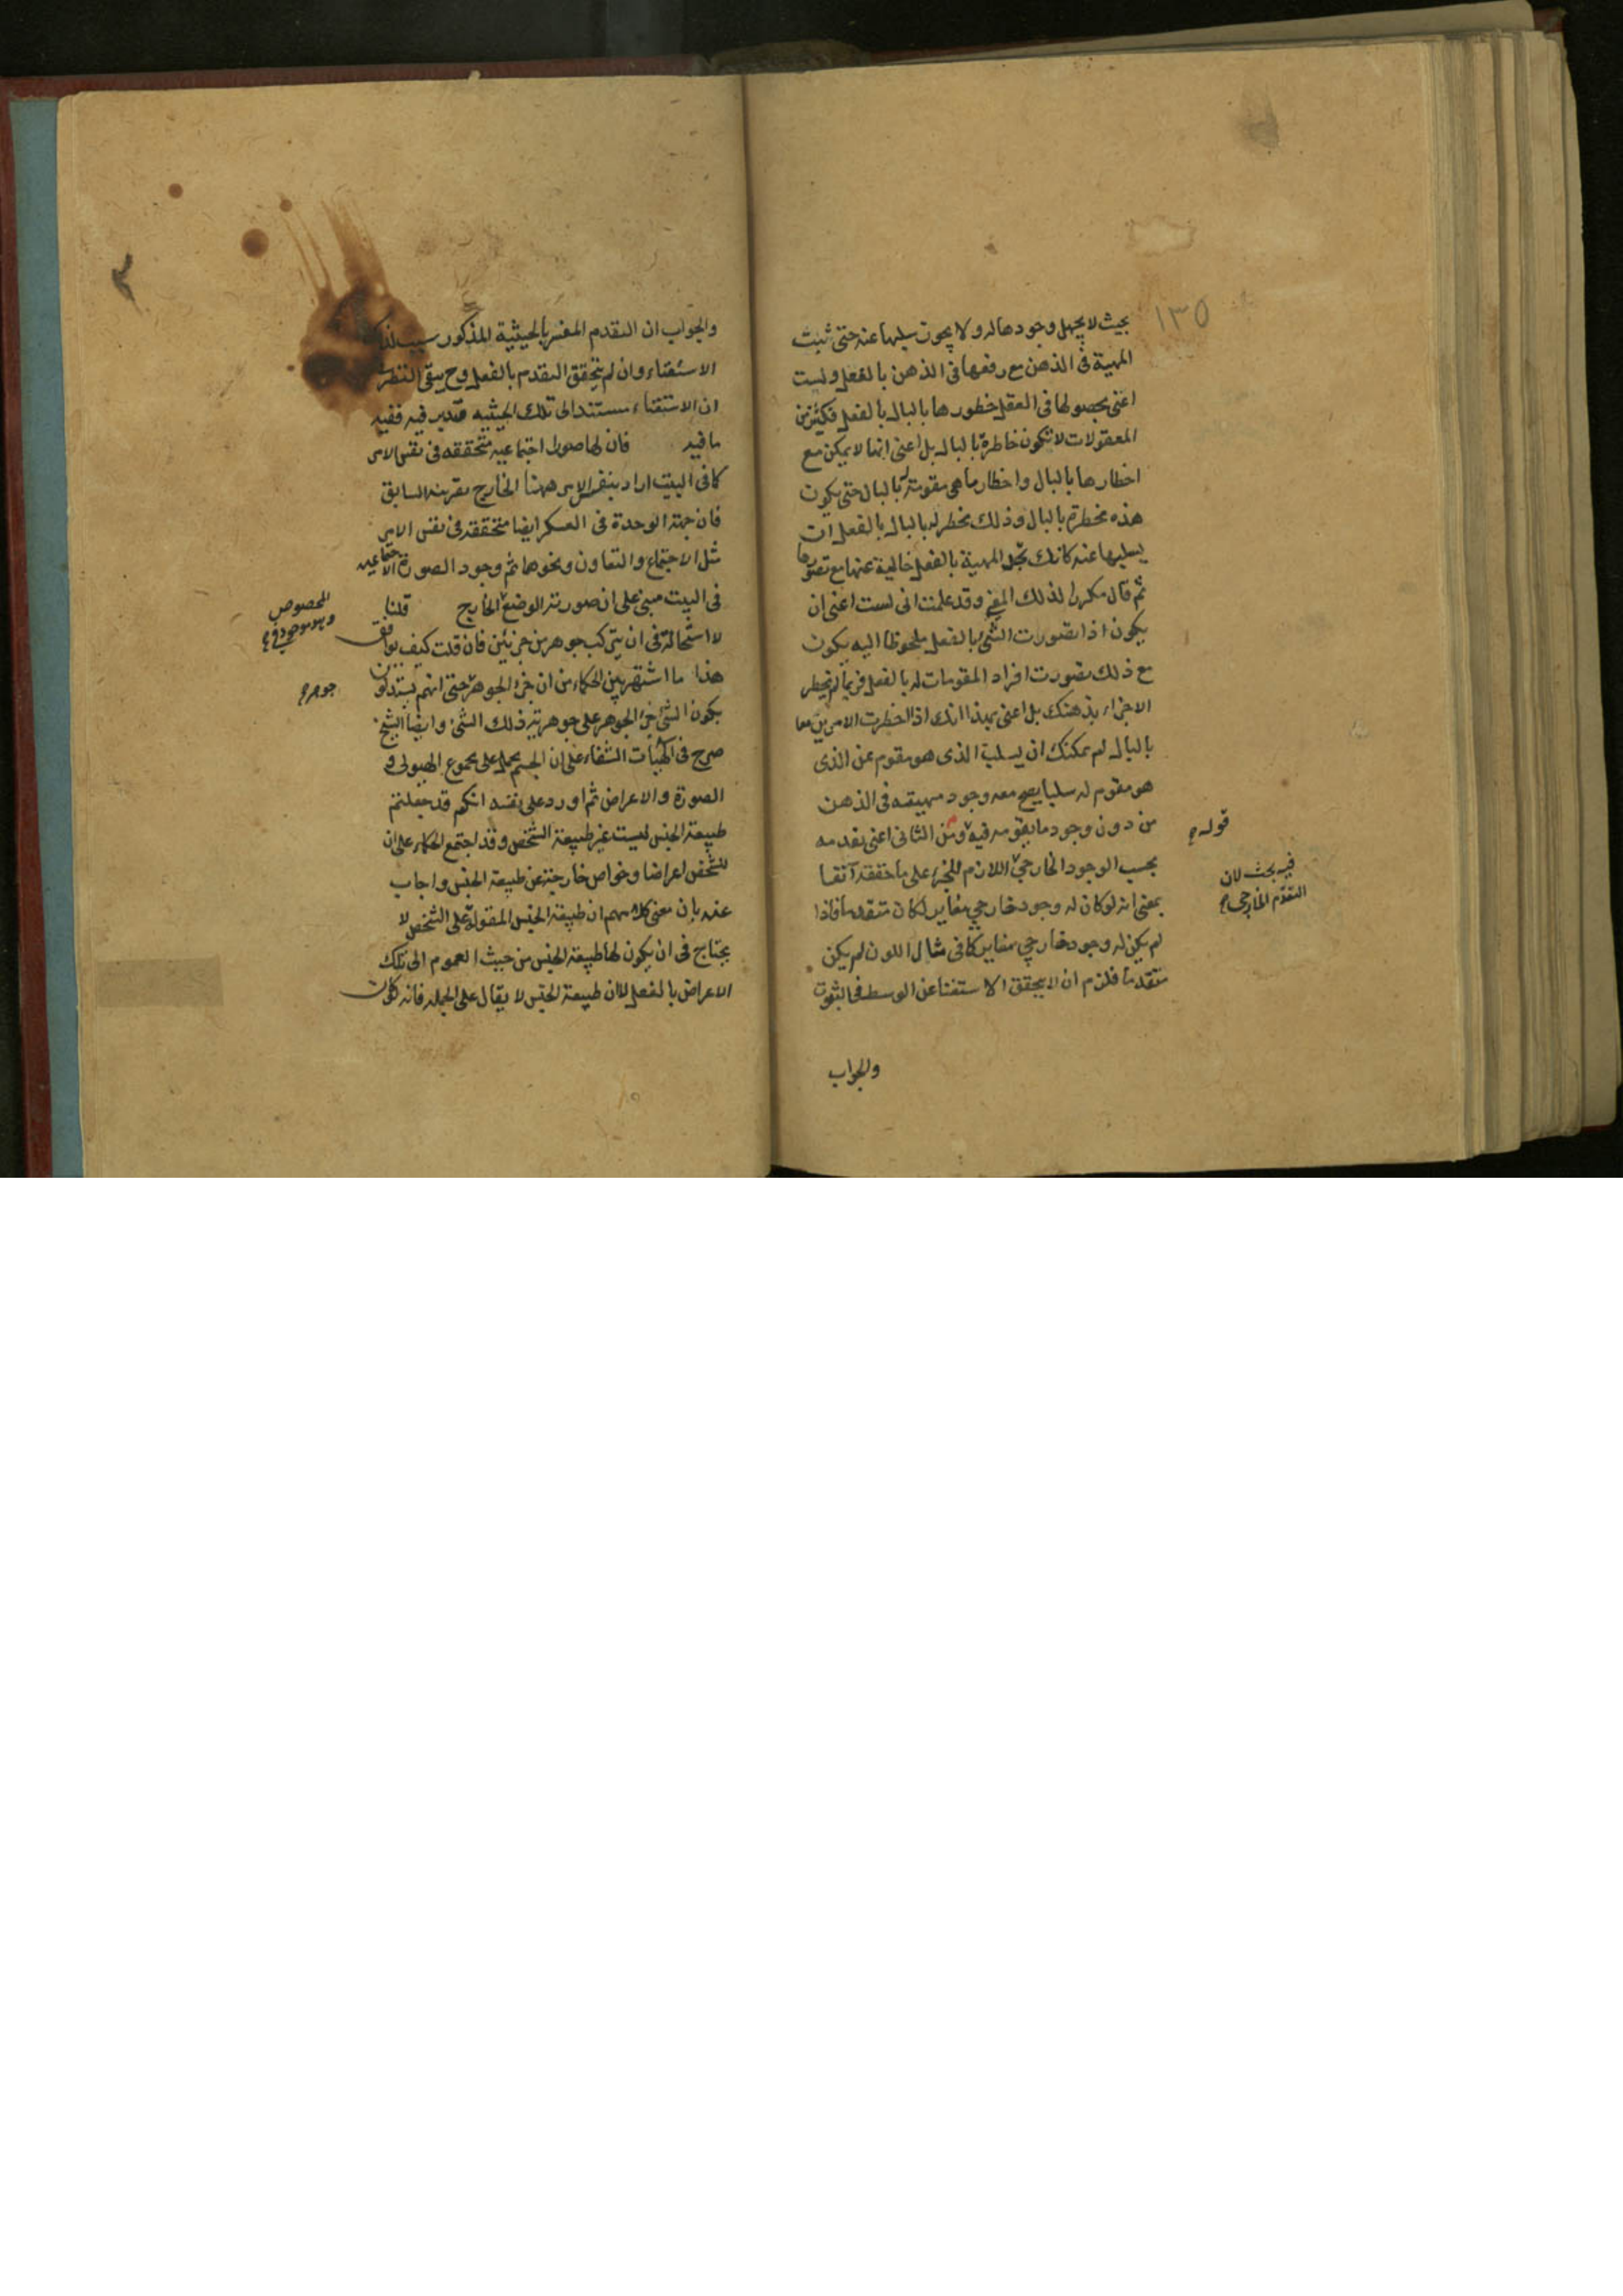 ١٣٥
بحيث لا يجهل وجودها له ولا يجوز سلبها عنه حتى تثبت
المهية في الذهن مع رفعها في الذهن بالفعل ولست
اعنى بحصولها في العقل خطورها بالبال بالفعل فكثير من
المعقولات لا تكون خاطرة بالبال بل اعنى انها لا يمكن مع
اخطارها بالبال واخطار ما هي مقومة له بالبال حتى يكون
هذه مخطرة بالبال وذلك مخطر له بالبال بالفعل ان
يسلبها عنه كانك تجد المهية بالفعل خالية عنها مع تصورها
ثم قال مكررا لذلك المعنى وقد علمت انى لست اعنى ان
يكون اذا تصورت الشئ بالفعل ملحوظا اليه يكون
مع ذلك تصورت افراد المقومات له بالفعل فربما لم تخطر
الاجزاء بذهنك بل اعنى بهذا انك اذا اخطرت الامرين معا
بالبال لم يمكنك ان يسلب الذى هو مقوم عن الذى
هو مقوم له سلبا يصح معه وجود مهيته في الذهن
من دون وجود ما يقومه فيه ومن الثانى اعنى تقدمه
قوله
بحسب الوجود الخارجي اللازم للجزء على ما حققه آنفا
فيه بحث لان
التقدم الخارجي
بمعنى انه لو كان له وجود خارجي مغاير لكان متقدما فاذا
لم يكن له وجود خارجي مغاير كما في مثال اللون لم يكن
متقدما فلزم ان لا يتحقق الاستغنا عن الوسط في الثبوت
والجواب
والجواب ان التقدم المفسر بالحيثية المذكور سبب لذلك
الاستغناء وان لم يتحقق التقدم بالفعل وح يبقى النظر
ان الاستغناء مستند الى تلك الحيثيه فتدبر فيه ففيه
ما فيه فان لها صورا اجتماعيه متحققه في نفس الامر
كما في البيت اراد بنفس الامر ههنا الخارج بقرينه السابق
فان جهة الوحدة في العسكر ايضا متحققه في نفس الامر
مثل الاجتماع والتعاون ونحوها ثم وجود الصورة الاجتماعيه
في البيت مبنى على ان صورته الوضع الخارج قلنا
المخصوص
وهو موجود في
لا استحالة في ان يتركب جوهر من جزئين فان قلت كيف يوافق
هذا ما اشتهر بين الحكماء من ان جزء الجوهر حتى انهم يستدلون
جوهر
بكون الشئ جزء الجوهر على جوهرية ذلك الشئ وايضا الشيخ
صرح في الهيات الشفاء على ان الجسم يحمل على مجموع الهيولى و
الصورة والاعراض ثم اورد على نفسه انكم قد جعلتم
طبيعة الجنس ليست غير طبيعة الشخص وقد اجتمع الحكماء على ان
للشخص اعراضا وخواص خارجة عن طبيعة الجنس واجاب
عنه بان معنى كلامهم ان طبيعة الجنس المقولة على الشخص لا
يحتاج في ان يكون لها طبيعة الجنس من حيث العموم الى تلك
الاعراض بالفعل لا ان طبيعة الجنس لا يقال على الجمله فانه لو كان